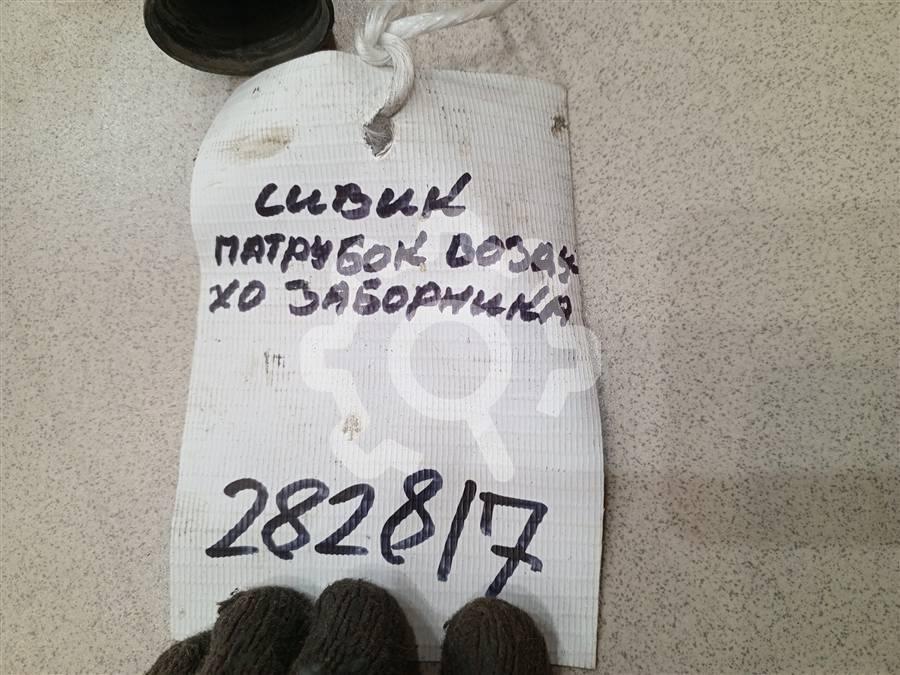 СИВИК
ПАТРУБОК ВОЗДУ
ХО ЗАБОРНИКА
2828/7